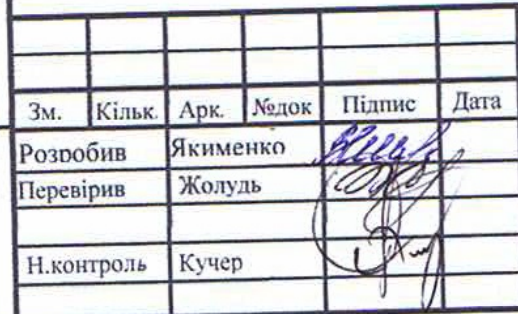 Зм. Кільк. Арк. №док Підпис Дата
Розробив Якименко
Перевірив Жолудь
Н.контроль Кучер